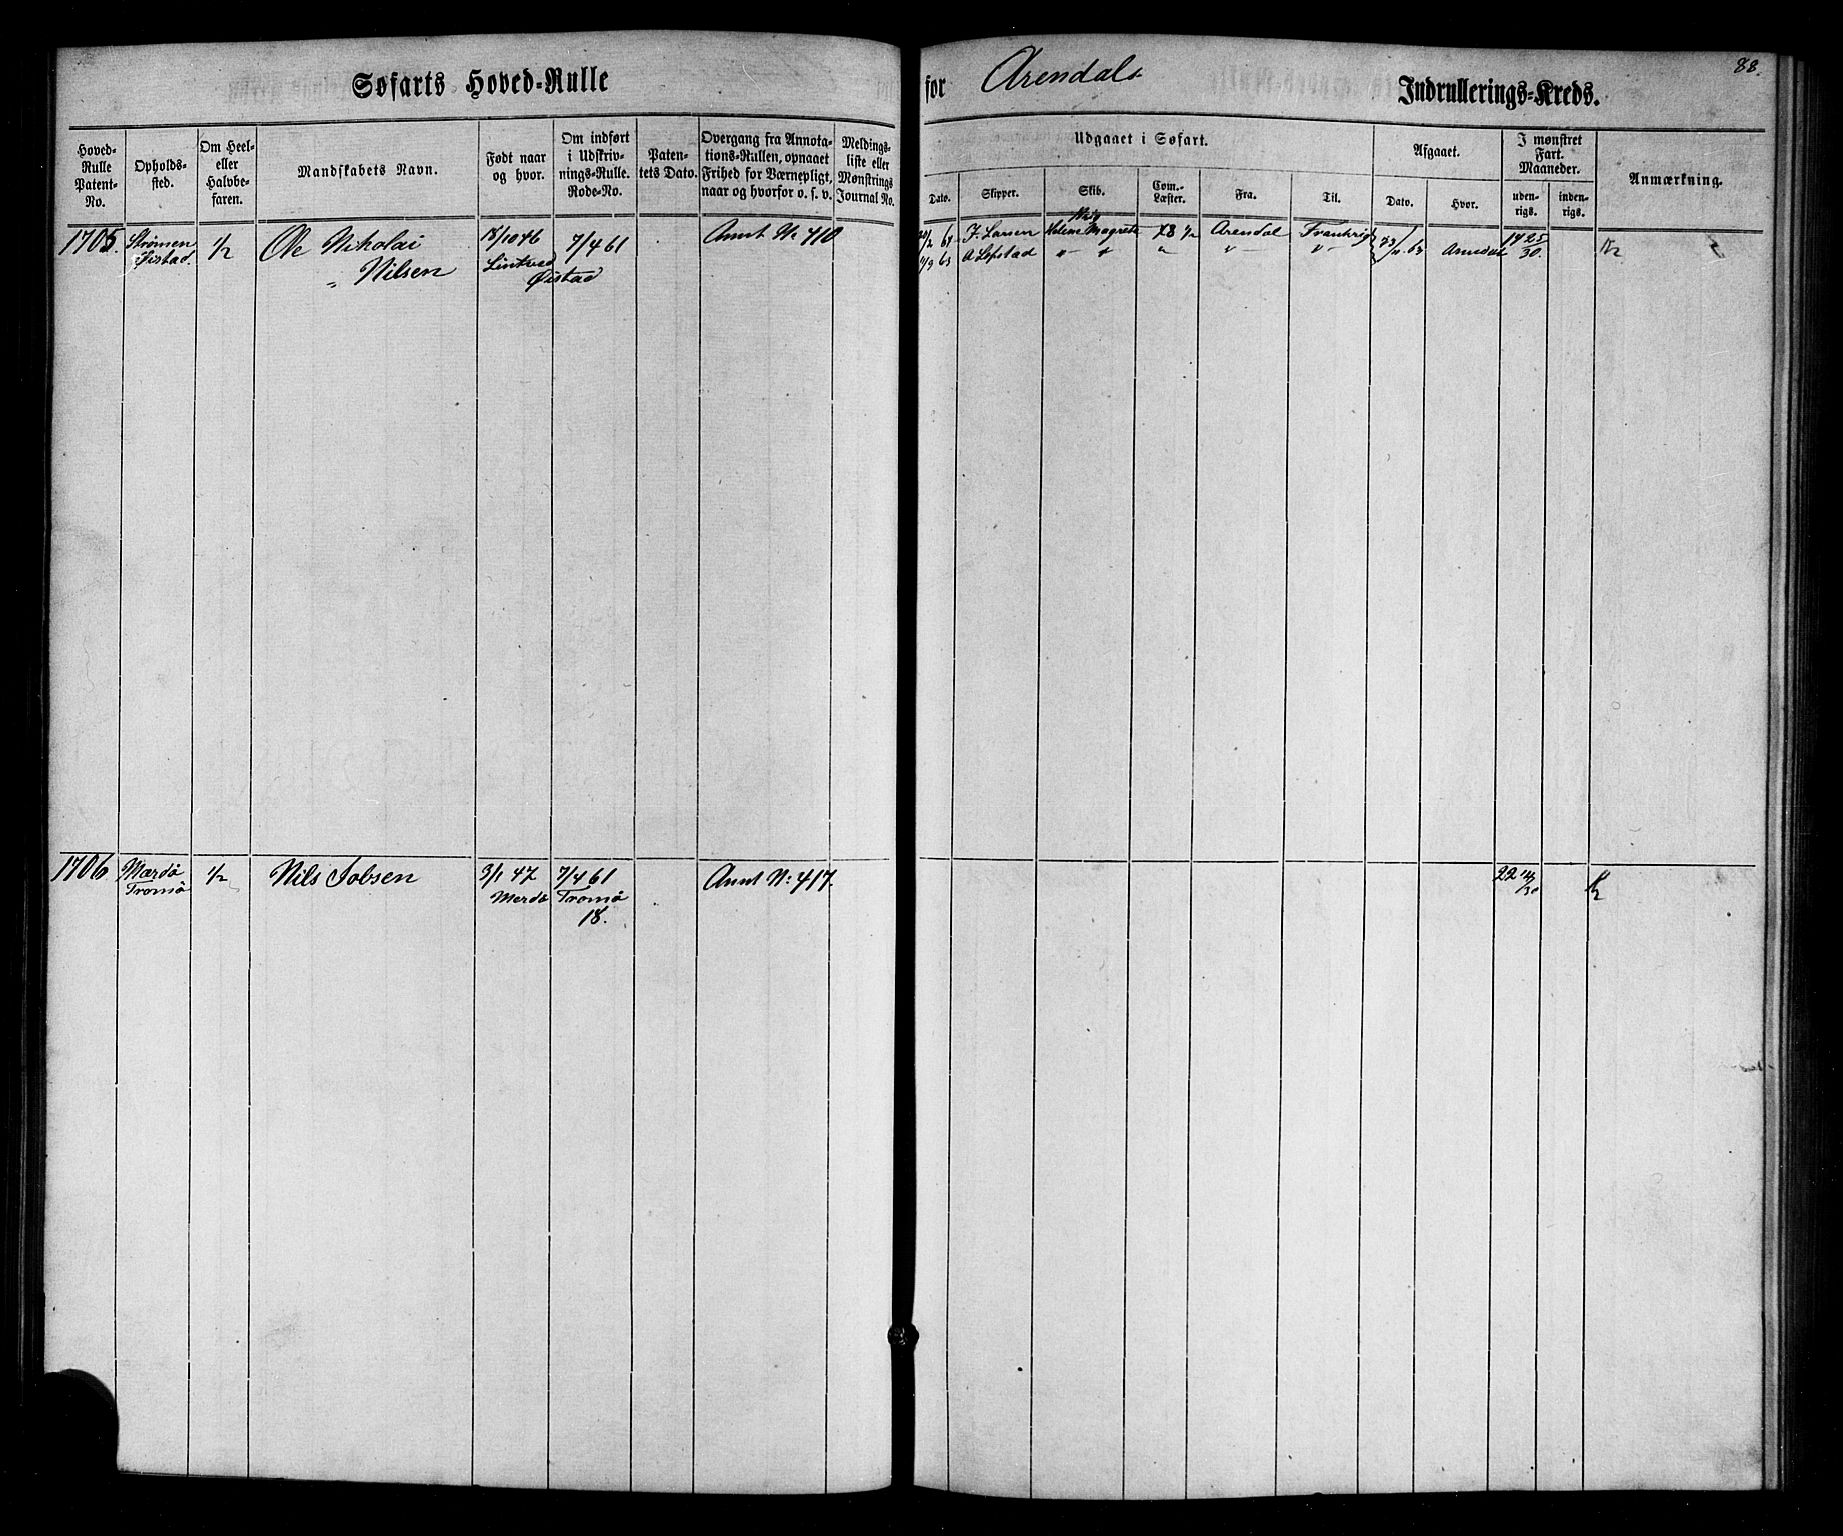 Søfarts Hoved-Rulle
for Arendals Indrullerings-Kreds.
88.
Hoved-Rulle Patent-No.
Opholds-sted.
Om Heel- eller Halvbe-faren.
Mandskabets Navn.
Født naar og hvor.
Om indført i Udskriv-nings-Rulle. Rode-No.
Paten-tets Dato.
Overgang fra Annota-tions-Rullen, opnaaet Frihed for Værnepligt, naar og hvorfor o. s. v.
Meldings-liste eller Mønstrings Journal No.
Udgaaet i Søfart.
Dato.
Skipper.
Skib.
Com.-Læster.
Fra.
Til.
Afgaaet.
Dato.
Hvor.
I mønstret Fart. Maaneder.
uden-rigs.
inden-rigs.
Anmærkning.
1705.
Strømen
Øistad.
1/2
Ole Nikolai
" Nilsen
18/10 46
Øistad
7/4 61
Annt No 410
J. Larsen
Helene Magrete
78 1/2
Arendal
Frankrig
11/3 65
" "
"
" —
" —
Arendal
14 25/30.
1706
Mærdø
Tromø
1/2
Nils Jobsen
3/1 47
Merdø
7/4 61
Tromø
18.
Annt No: 417.
22